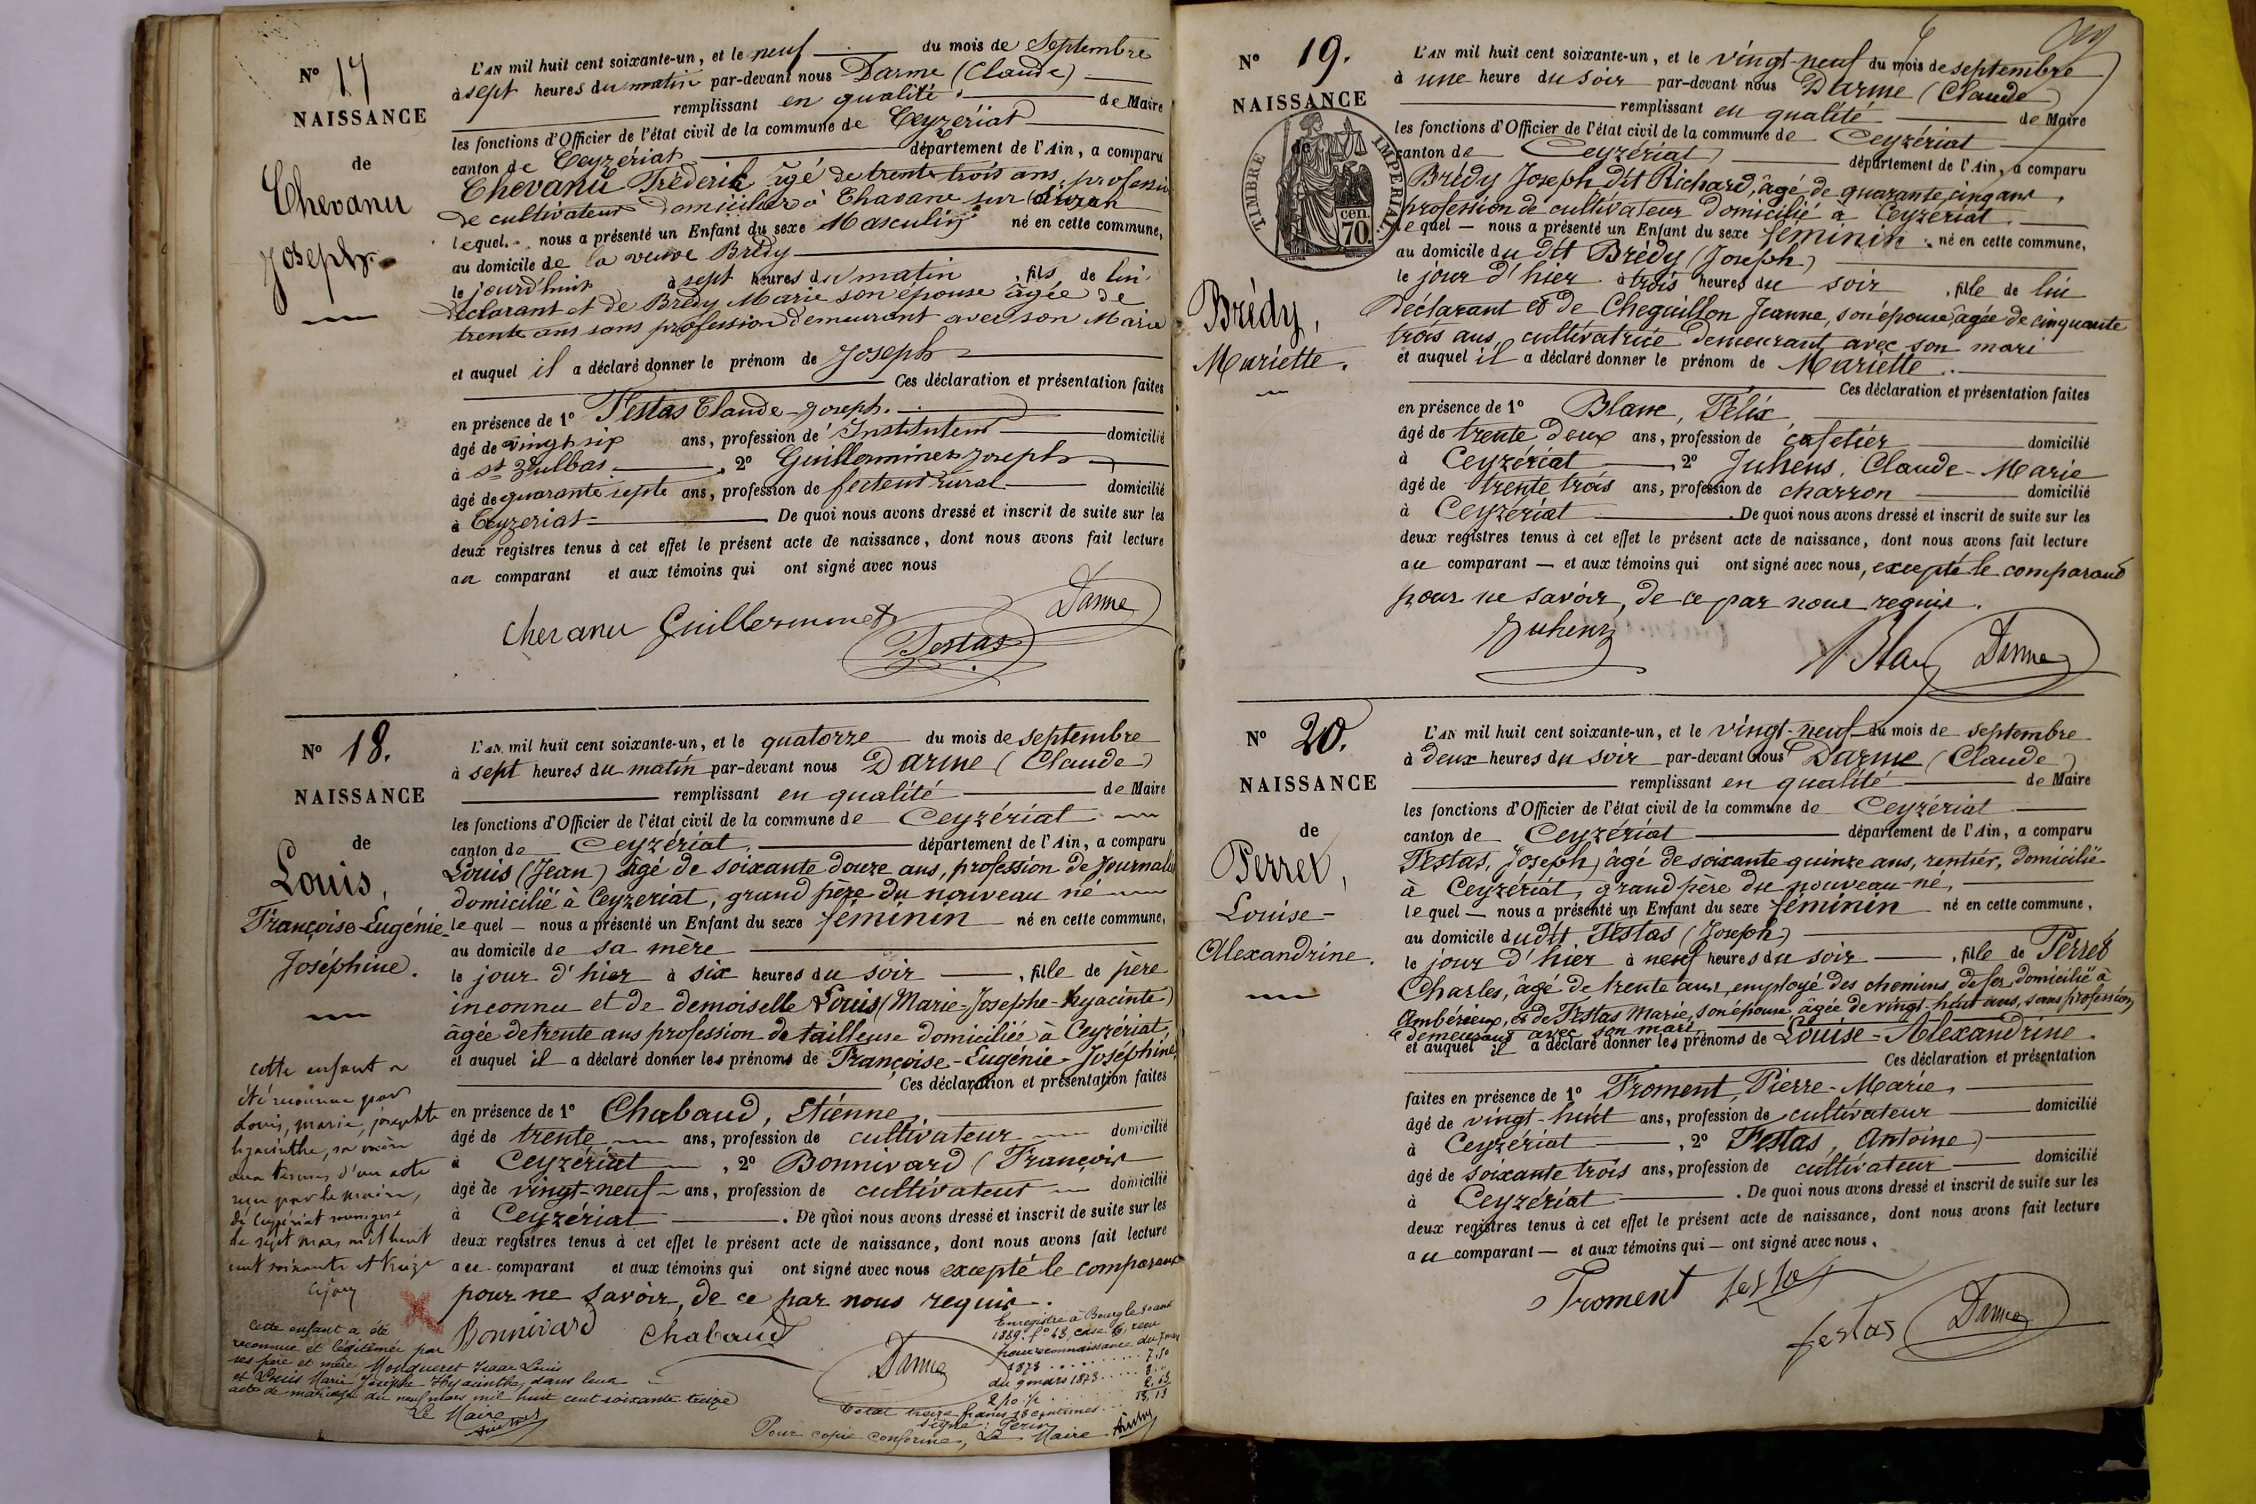 N° 17
NAISSANCE
de
Chevanu
Joseph
L'AN mil huit cent soixante-un, et le neuf du mois de Septembre
à sept heures du matin par-devant nous Darme (Claude)
remplissant en qualité de Maire
les fonctions d'Officier de l'état civil de la commune de Ceyzériat
canton de Ceyzériat département de l'Ain, a comparu
Chevanu Fréderik âgé de trente trois ans, profession
de cultivateur domicilier à Chavane sur Suran
lequel nous a présenté un Enfant du sexe Masculin né en cette commune,
au domicile de la veuve Brédy
le jourd'huit à sept heures du matin, fils de lui
déclarant et de Brédy Marie son épouse âgée de
trente ans sans profession demeurant avec son Marie
et auquel il a déclaré donner le prénom de Joseph
Ces déclaration et présentation faites
en présence de 1° Festas Claude-Joseph.
âgé de vingt six ans, profession de Instituteur domicilié
à St , 2° Guillerminet Joseph
âgé de quarante septe ans, profession de fecteur rural domicilié
à Ceyzeriat De quoi nous avons dressé et inscrit de suite sur les
deux registres tenus à cet effet le présent acte de naissance, dont nous avons fait lecture
au comparant et aux témoins qui ont signé avec nous
Chevanu Guillerminet Festas Darme
N° 18.
NAISSANCE
de
Louis,
Françoise-Eugénie-
Joséphine.
L'AN mil huit cent soixante-un, et le quatorze du mois de septembre
à sept heures du matin par-devant nous Darme (Claude)
remplissant en qualité de Maire
les fonctions d'Officier de l'état civil de la commune de Ceyzériat
canton de Ceyzériat département de l'Ain, a comparu
Louis (Jean) âgé de soixante douze ans, profession de journalier
domicilié à Ceyzeriat, grand père du nouveau né
lequel — nous a présenté un Enfant du sexe féminin né en cette commune,
au domicile de sa mère
le jour d'hier à six heures du soir, fille de père
inconnu et de demoiselle Louis (Marie-Josephe-hyacinte)
âgée de trente ans profession de tailleuse domiciliée à Ceyzériat,
et auquel il a déclaré donner les prénoms de Françoise-Eugénie-Joséphine
Ces déclaration et présentation faites
en présence de 1° Chabaud, Etiénne,
âgé de trente ans, profession de cultivateur domicilié
à Ceyzériat, 2° Bonnivard (François
âgé de vingt-neuf ans, profession de cultivateur domicilié
à Ceyzériat. De quoi nous avons dressé et inscrit de suite sur les
deux registres tenus à cet effet le présent acte de naissance, dont nous avons fait lecture
au comparant et aux témoins qui ont signé avec nous excepté le comparant
pour ne savoir, de ce par nous requis.
Bonnivard Chabaud Darme
cette enfant a
été reconnue par
Louis, marie, josephte
hyacinthe, sa mère
aux termes d'un acte
reçu par le maire,
de Ceyzériat
de sept mars mil huit
cent soixante et treize
Cette enfant a été
reconnue et légitimée par
ses père et mère Monqueret Isaac Louis
et Louis Marie Josephe Hyacinthe, dans leur
acte de mariage du neuf mars mil huit cent soixante treize
Le Maire
Enregistré à Bourg le
1889. f° 43, case 6, reçu
pour reconnaissance du 7 mars
1873 7.50
du 9 mars 1873
2.13
Total treize francs 13 centimes 13.13
Signé: Perin
Pour copie conforme, Le Maire
N° 19.
NAISSANCE
de
TIMBRE IMPERIAL
70 cen.
Brédy,
Mariette.
L'AN mil huit cent soixante-un, et le vingt-neuf du mois de septembre
à une heure du soir par-devant nous Darme (Claude)
remplissant en qualité de Maire
les fonctions d'Officier de l'état civil de la commune de Ceyzériat
canton de Ceyzériat département de l'Ain, a comparu
Brédy Joseph dit Richard, âgé de quarante cinq ans,
profession de cultivateur domicilié à Ceyzériat.
lequel — nous a présenté un Enfant du sexe féminin né en cette commune,
au domicile du dit Brédy (Joseph)
le jour d'hier à trois heures du soir, fille de lui
déclarant et de Cheguillon Jeanne, son épouse, âgée de cinquante
trois ans, cultivatrice demeurant avec son mari
et auquel il a déclaré donner le prénom de Mariette
Ces déclaration et présentation faites
en présence de 1° Blanc, Félix
âgé de trente deux ans, profession de cafetier domicilié
à Ceyzériat, 2° Juhens, Claude-Marie
âgé de trente trois ans, profession de charron domicilié
à Ceyzériat. De quoi nous avons dressé et inscrit de suite sur les
deux registres tenus à cet effet le présent acte de naissance, dont nous avons fait lecture
au comparant — et aux témoins qui ont signé avec nous, excepté le comparant
pour ne savoir, de ce par nous requis.
Juhens Blanc Darme
N° 20.
NAISSANCE
de
Perret,
Louise-
Alexandrine.
L'AN mil huit cent soixante-un, et le vingt-neuf du mois de septembre
à deux heures du soir par-devant nous Darme (Claude)
remplissant en qualité de Maire
les fonctions d'Officier de l'état civil de la commune de Ceyzériat
canton de Ceyzériat département de l'Ain, a comparu
Festas, Joseph, âgé de soixante quinze ans, rentier, domicilié
à Ceyzériat, grand père du nouveau-né,
lequel — nous a présenté un Enfant du sexe féminin né en cette commune,
au domicile dudit Festas (Joseph)
le jour d'hier à neuf heures du soir, fille de Perret
Charles, âgé de trente ans, employé des chemins de fer domicilié à
Ambérieux, et de Festas Marie, son épouse, âgée de vingt-huit ans, sans profession
demeurant avec son mari
et auquel il a déclaré donner les prénoms de Louise-Alexandrine
Ces déclaration et présentation
faites en présence de 1° Froment, Pierre-Marie,
âgé de vingt-huit ans, profession de cultivateur domicilié
à Ceyzériat, 2° Festas, Antoine
âgé de soixante trois ans, profession de cultivateur domicilié
à Ceyzériat. De quoi nous avons dressé et inscrit de suite sur les
deux registres tenus à cet effet le présent acte de naissance, dont nous avons fait lecture
au comparant — et aux témoins qui — ont signé avec nous.
Froment festas
festas Darme